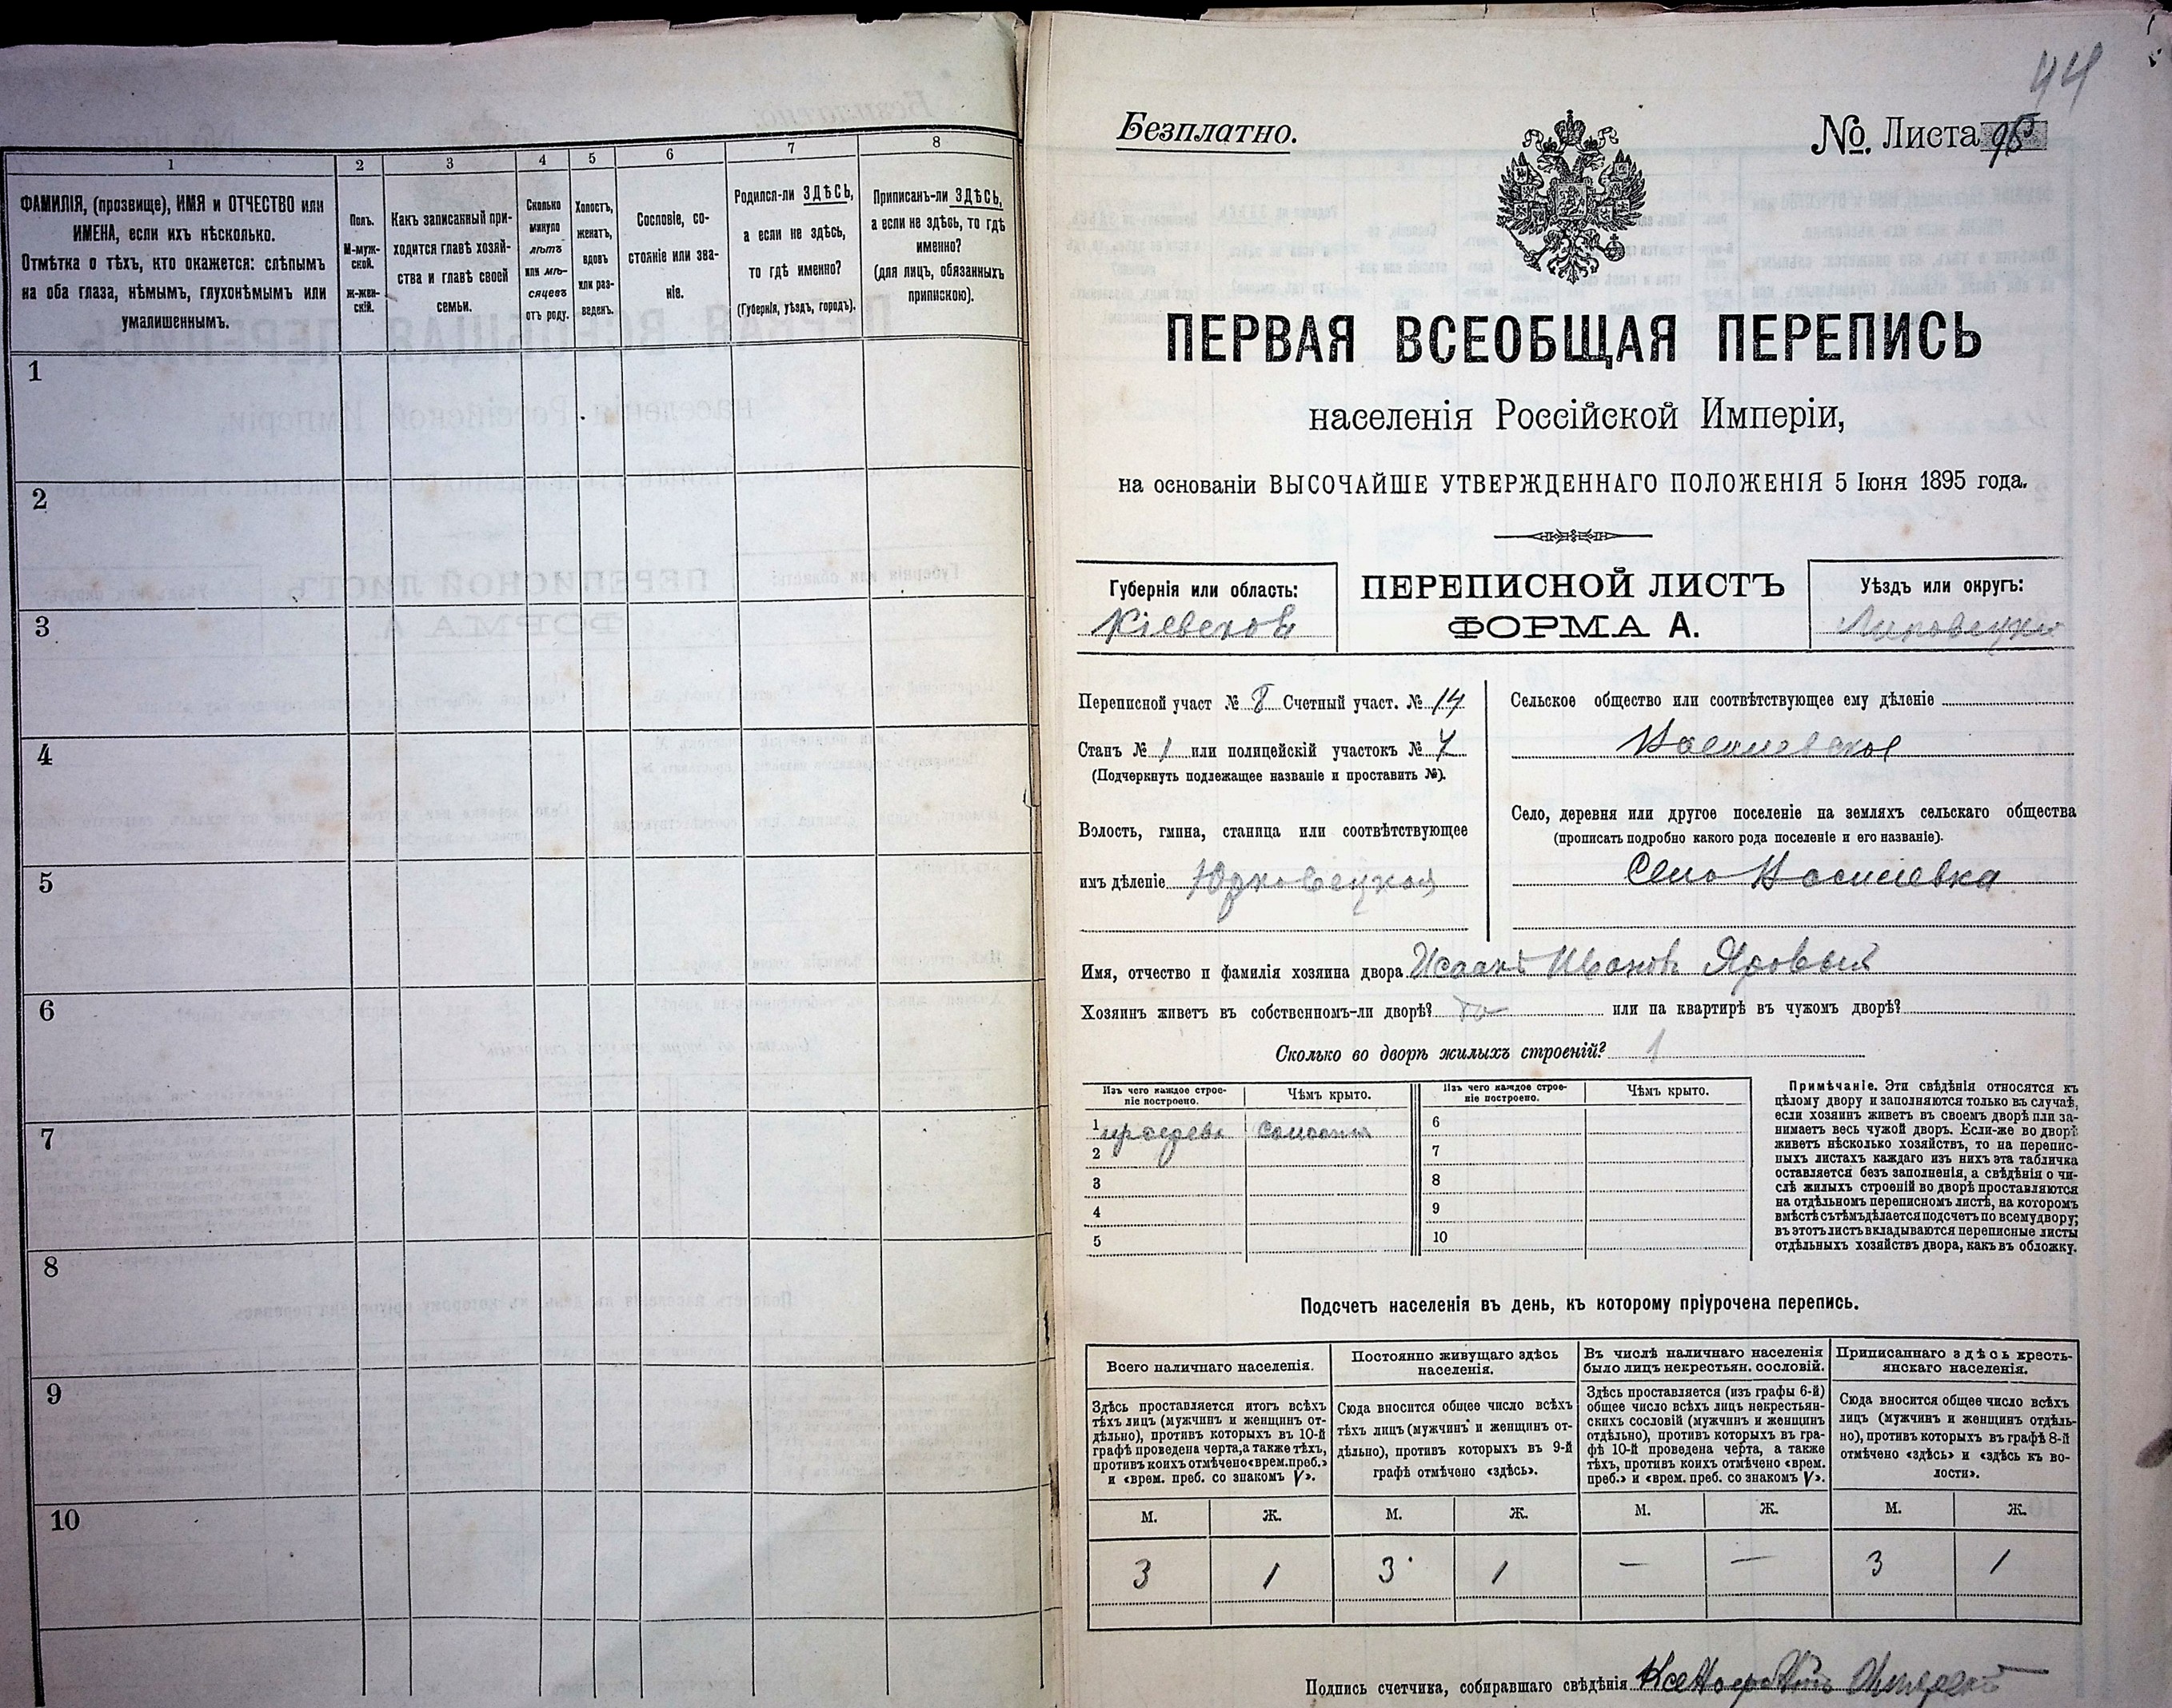 1
2
3
4
5
6
7
8
ФАМИЛІЯ, (прозвище), ИМЯ и ОТЧЕСТВО или
ИМЕНА, если ихъ нѣсколько.
Отмѣтка о тѣхъ, кто окажется: слѣпымъ
на оба глаза, нѣмымъ, глухонѣмымъ или
умалишеннымъ.
Полъ.
М-муж-
ской.
Ж-жен-
скій.
Какъ записанный при-
ходится главѣ хозяй-
ства и главѣ своей
семьи.
Сколько
минуло
лѣтъ
или мѣ-
сяцевъ
отъ роду.
Холостъ,
женатъ,
вдовъ
или раз-
веденъ.
Сословіе, со-
стояніе или зва-
ніе.
Родился-ли ЗДѢСЬ,
а если не здѣсь,
то гдѣ именно?
(Губернія, уѣздъ, городъ).
Приписанъ-ли ЗДѢСЬ,
а если не здѣсь, то гдѣ
именно?
(для лицъ, обязанныхъ
припискою).
1
2
3
4
5
6
7
8
9
10
44
Безплатно.
№ Листа 95
ПЕРВАЯ ВСЕОБЩАЯ ПЕРЕПИСЬ
населенія Россійской Имперіи,
на основаніи ВЫСОЧАЙШЕ УТВЕРЖДЕННАГО ПОЛОЖЕНІЯ 5 Іюня 1895 года.
Губернія или область:
Кіевской
ПЕРЕПИСНОЙ ЛИСТЪ
ФОРМА А.
Уѣздъ или округъ:
Липовецкій
Переписной участ № 8 Счетный участ. № 14
Станъ № 1 или полицейскій участокъ № 7
(Подчеркнуть подлежащее названіе и проставить №).
Волость, гмина, станица или соотвѣтствующее
имъ дѣленіе Юрковецкая
Сельское общество или соотвѣтствующее ему дѣленіе
Село, деревня или другое поселеніе на земляхъ сельскаго общества
(прописать подробно какого рода поселеніе и его названіе).
Село
Имя, отчество и фамилія хозяина двора Исаакъ Ивановъ Яровый
Хозяинъ живетъ въ собственномъ-ли дворѣ? да или на квартирѣ въ чужомъ дворѣ?
Сколько во дворѣ жилыхъ строеній? 1
Изъ чего каждое строе-
ніе построено.
Чѣмъ крыто.
Изъ чего каждое строе-
ніе построено.
Чѣмъ крыто.
1 соломы
2
3
4
5
6
7
8
9
10
Примѣчаніе. Эти свѣдѣнія относятся къ
цѣлому двору и заполняются только въ случаѣ,
если хозяинъ живетъ въ своемъ дворѣ или за-
нимаетъ весь чужой дворъ. Если-же во дворѣ
живетъ нѣсколько хозяйствъ, то на перепис-
ныхъ листахъ каждаго изъ нихъ эта табличка
оставляется безъ заполненія, а свѣдѣнія о чи-
слѣ жилыхъ строеній во дворѣ проставляются
на отдѣльномъ переписномъ листѣ, на которомъ
вмѣстѣ съ тѣмъ дѣлается подсчетъ по всему двору;
въ этотъ листъ вкладываются переписные листы
отдѣльныхъ хозяйствъ двора, какъ въ обложку.
Подсчетъ населенія въ день, къ которому пріурочена перепись.
Всего наличнаго населенія.
Постоянно живущаго здѣсь
населенія.
Въ числѣ наличнаго населенія
было лицъ некрестьян. сословій.
Приписаннаго здѣсь кресть-
янскаго населенія.
Здѣсь проставляется итогъ всѣхъ
тѣхъ лицъ (мужчинъ и женщинъ от-
дѣльно), противъ которыхъ въ 10-й
графѣ проведена черта, а также тѣхъ,
противъ коихъ отмѣчено «врем. преб.»
и «врем. преб. со знакомъ V».
Сюда вносится общее число всѣхъ
тѣхъ лицъ (мужчинъ и женщинъ от-
дѣльно), противъ которыхъ въ 9-й
графѣ отмѣчено «здѣсь».
Здѣсь проставляется (изъ графы 6-й)
общее число всѣхъ лицъ некрестьян-
скихъ сословій (мужчинъ и женщинъ
отдѣльно), противъ которыхъ въ гра-
фѣ 10-й проведена черта, а также
тѣхъ, противъ коихъ отмѣчено «врем.
преб.» и «врем. преб. со знакомъ V».
Сюда вносится общее число всѣхъ
лицъ (мужчинъ и женщинъ отдѣль-
но), противъ которыхъ въ графѣ 8-й
отмѣчено «здѣсь» и «здѣсь къ во-
лости».
М. Ж. М. Ж. М. Ж. М. Ж.
3 1 3 1 — — 3 1
Подпись счетчика, собиравшаго свѣдѣнія